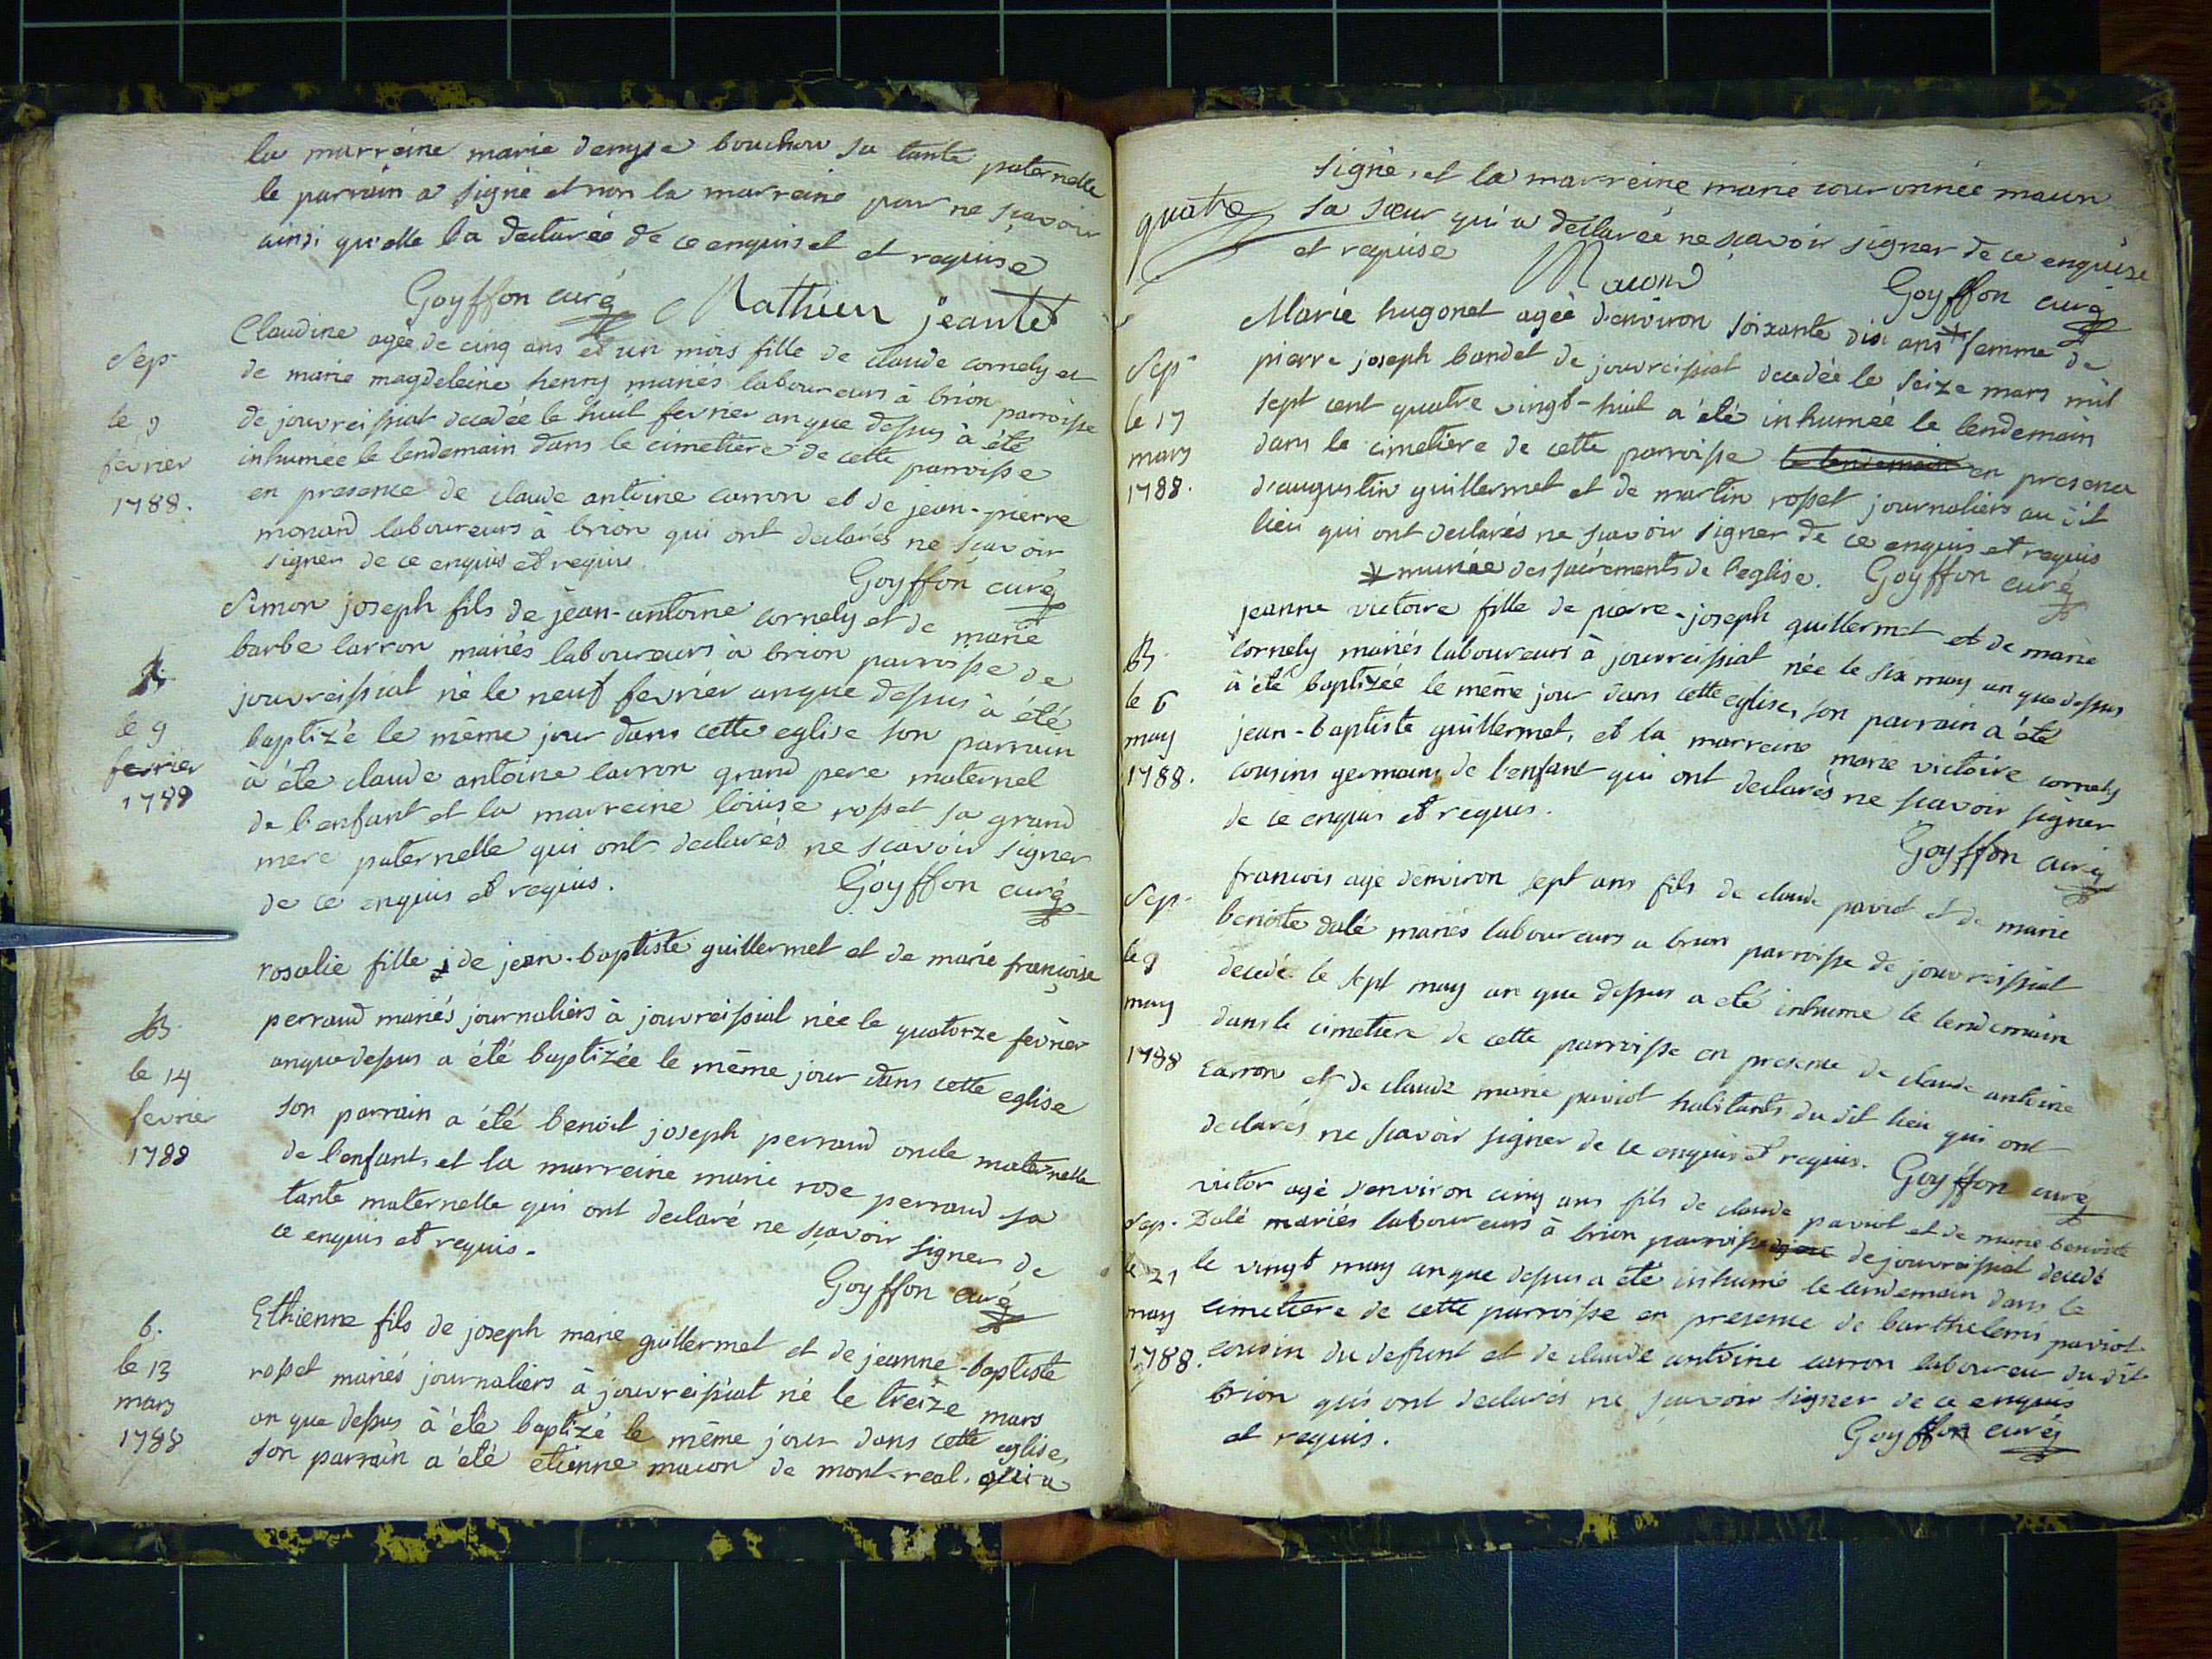 la marreine marie denyse bouchon sa tante paternelle
le parrain a signé et non la marreine pour ne sçavoir
ainsi qu'elle l'a declarée de ce enquise et et requise
Goyffon curé Mathieu jeantet
Sep.
le 9
fevrier
1788.
Claudine agée de cinq ans et un mois fille de claude cornely et
de marie magdeleine henry mariés laboureurs à brion parroisse
de jouvreissiat decedée le huit fevrier an que dessus à été
inhumée le lendemain dans le cimetiere de cette parroisse
en presence de claude antoine carron et de jean-pierre
monard laboureurs à brion qui ont declarés ne scavoir
signer de ce enquis et requis
Goyffon curé
B
le 9
fevrier
1788
Simon joseph fils de jean-antoine cornely et de marie
barbe carron mariés laboureurs à brion parroisse de
jouvreissiat né le neuf fevrier an que dessus à été
baptizé le même jour dans cette eglise son parrain
à été claude antoine carron grand pere maternel
de l'enfant et la marreine louise rosset sa grand
mere paternelle qui ont declarés ne scavoir signer
de ce enquis et requis.
Goyffon curé
B.
le 14
fevrier
1788
rosalie fille de jean-baptiste guillermet et de marie françoise
perraud mariés journaliers à jouvreissiat née le quatorze fevrier
an que dessus a été baptizée le même jour dans cette eglise
son parrain a été benoit joseph perraud oncle maternelle
de l'enfant, et la marreine marie rose perraud sa
tante maternelle qui ont declaré ne sçavoir signer de
ce enquis et requis.
Goyffon curé
b.
le 13
mars
1788
Ethienne fils de joseph marie guillermet et de jeanne-baptiste
rosset mariés journaliers à jouvreissiat né le treize mars
an que dessus à été baptizé le même jour dans cette eglise,
son parrain a été etienne macon de mont-real, qui a
quatre
signé, et la marreine marie couronnée macon
sa sœur qui a declarée ne scavoir signer de ce enquise
et requise
Macon Goyffon curé
Sep.
le 17
mars
1788.
Marie hugonet agée d'environ soixante dix ans * femme de
pierre joseph bandet de jouvreissiat decedée le seize mars mil
sept cent quatre vingt-huit a été inhumée le lendemain
dans le cimetiere de cette parroisse le lendemain en presence
d'augustin guillermet et de martin rosset journaliers au dit
lieu qui ont declarés ne scavoir signer de ce enquis et requis
* munée des sacrements de l'eglise. Goyffon curé
B.
le 6
may
1788.
jeanne victoire fille de pierre-joseph guillermet et de marie
cornely mariés laboureurs à jouvreissiat née le six may an que dessus
à été baptizée le même jour dans cette eglise, son parrain a été
jean-baptiste guillermet, et la marreine marie victoire cornely
cousins germains de l'enfant qui ont declarés ne scavoir signer
de ce enquis et requis.
Goyffon curé
Sep.
le 9
may
1788
francois agé d'environ sept ans fils de claude paviot et de marie
benoite dalé mariés laboureurs a brion parroisse de jouvreissiat
decedé le sept may an que dessus a été inhumé le lendemain
dans le cimetiere de cette parroisse en presence de claude antoine
carron et de claude marie paviot habitants du dit lieu qui ont
declarés ne scavoir signer de ce enquis et requis. Goyffon curé
Sep.
le 21
may
1788.
victor agé d'environ cinq ans fils de claude paviot et de marie benoite
Dalé mariés laboureurs à brion parroisse de jouvreissiat decedé
le vingt may an que dessus a été inhumé le lendemain dans le
cimetiere de cette parroisse en presence de barthelemi paviot
cousin du defunt et de claude antoine carron laboureur du dit
brion qui ont declarés ne sçavoir signer de ce enquis
et requis.
Goyffon curé